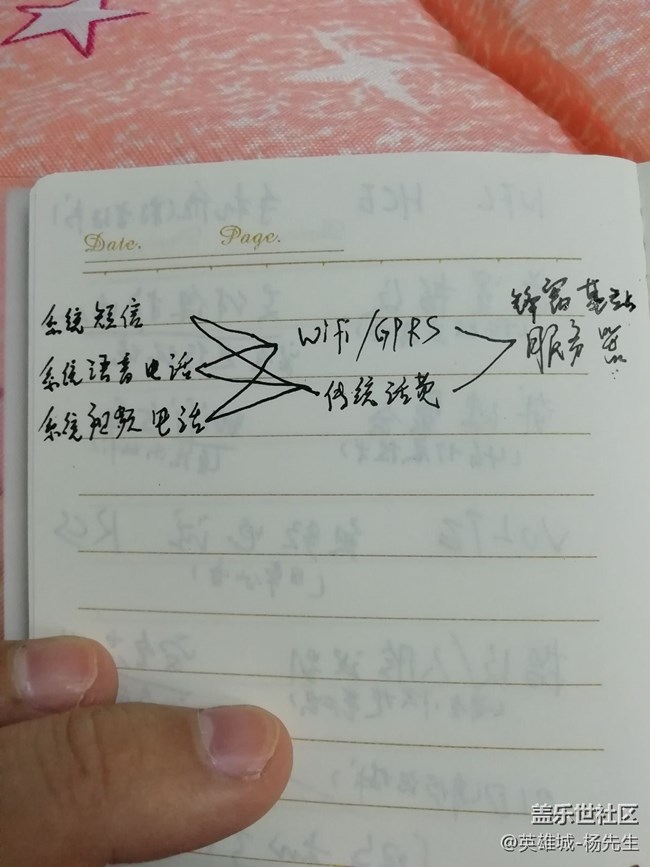 Date. Page.
系统短信
系统语音电话
系统视频电话
WiFi/GPRS
传统话费
基站
服务器
盖乐世社区
@英雄城-杨先生